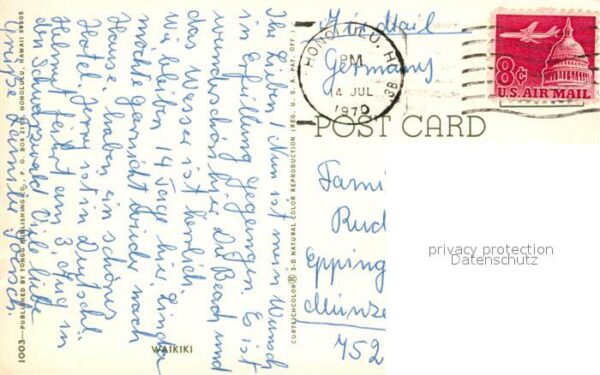 Ihr Lieben! Nun ist mein Wunsch
in Erfüllung gegangen. Es ist
wunderschön hier. Der Beach und
das Wasser ist herrlich.
Wir bleiben 14 Tage hier. Linda
möcht garnicht wieder nach
Hause. haben ein schönes
Hotel. Jerry ist in Deutschl.
Helmut feiert am 3. Aug in
den Schwarzwald Viele liebe
Grüße
WAIKIKI
1003—PUBLISHED BY CO., P. O. BOX HONOLULU, HAWAII
CURTEICHCOLOR® 3-D NATURAL COLOR REPRODUCTION (REG. U. S. A. PAT. OFF.)
Air Mail
Germany
HONOLULU, HI
PM
4 JUL
1970
8c
U.S. AIR MAIL
POST CARD
Fami
Rud
Epping
Münze
752
privacy protection
Datenschutz